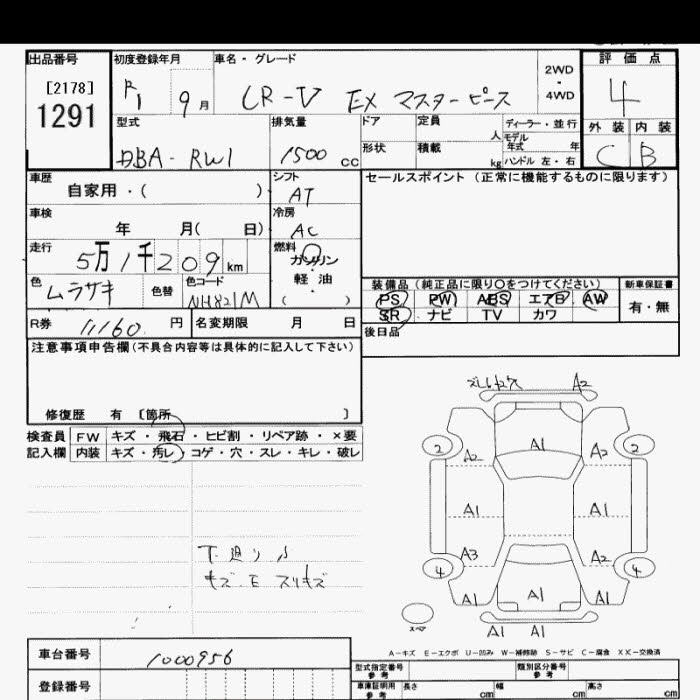 出品番号
[2178]
1291
初度登録年月
R1 9 月
車名・グレード
CR-V EX マスターピース
2WD
・
4WD
評価点
4
外装 内装
C B
型式
DBA-RW1
排気量
1500 cc
ドア
定員
人
形状
積載
kg
ディーラー・並行
モデル
年式 年
ハンドル 左・右
車歴
自家用・( )
シフト
AT
セールスポイント (正常に機能するものに限ります)
車検
年 月( 日)
冷房
AC
走行
5万1千209km
燃料
ガソリン
・
軽油
( )
色
ムラサキ
色替
色コード
NH821M
装備品 (純正品に限り○をつけてください)
PS PW ABS エアB AW
SR ナビ TV カワ
新車保証書
有・無
R券
11160 円
名変期限 月 日
後日品
注意事項申告欄(不具合内容等は具体的に記入して下さい)
修復歴 有 〔箇所 〕
検査員
記入欄
FW キズ・飛石・ヒビ割・リペア跡・×要
内装 キズ・汚レ・コゲ・穴・スレ・キレ・破レ
下廻り
キズ・E スリキズ
A2
A1
2 A2 A2 2
A1 A1
A3 A2
4 4
A1 A1 A1
スペア
A1 A1
A-キズ E-エクボ U-凹み W-補修跡 S-サビ C-腐食 XX-交換済
車台番号
1000956
登録番号
型式指定番号
参考
類別区分番号
参考
車庫証明用
参考
長さ cm
幅 cm
高さ cm